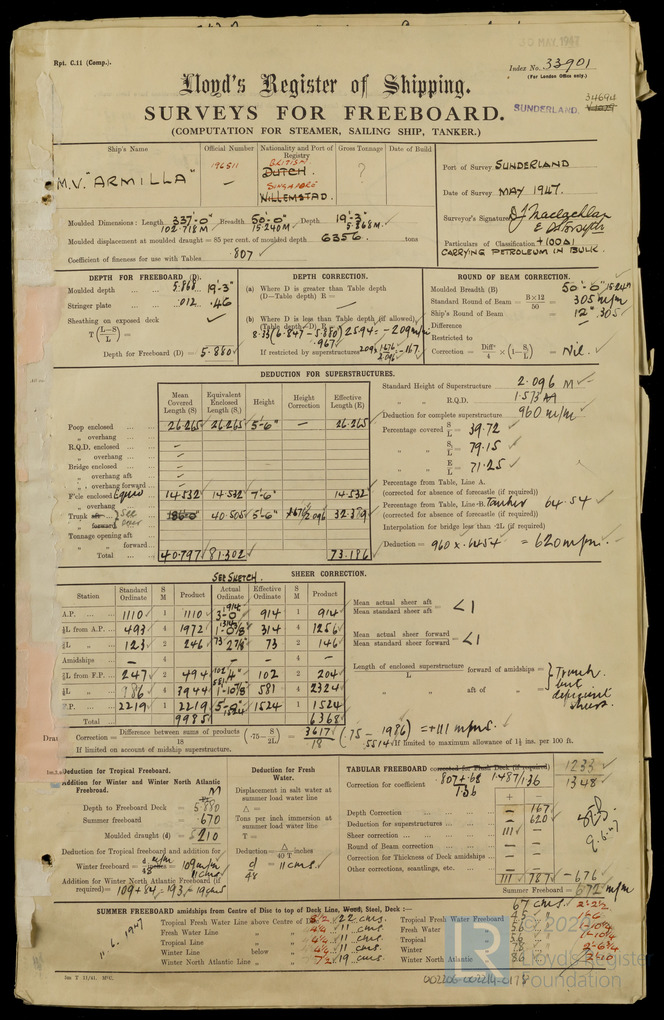 Rpt. C.11 (Comp.).
Index No. 33901
(For London Office only.)
Lloyd's Register of Shipping.
SUNDERLAND.
SURVEYS FOR FREEBOARD.
(COMPUTATION FOR STEAMER, SAILING SHIP, TANKER.)
Ship's Name
Official Number
Nationality and Port of Registry
Gross Tonnage
Date of Build
M.V. "ARMILLA"
196511
BRITISH
DUTCH
SINGAPORE
WILLEMSTAD.
?
Port of Survey SUNDERLAND
Date of Survey MAY 1947.
Surveyor's Signature
Particulars of Classification +100A1
CARRYING PETROLEUM IN BULK.
Moulded Dimensions: Length 337'-0" Breadth 50'-0" Depth 19'-3"
102.718M 15.240M 5.868M
Moulded displacement at moulded draught = 85 per cent. of moulded depth 6356 tons
Coefficient of fineness for use with Tables .807
DEPTH FOR FREEBOARD (D).
Moulded depth 5.868 19'-3"
Stringer plate .012 .46
Sheathing on exposed deck
T (L-S/L) =
Depth for Freeboard (D) = 5.880
DEPTH CORRECTION.
(a) Where D is greater than Table depth
(D—Table depth) R =
(b) Where D is less than Table depth (if allowed)
(Table depth—D) R =
8.33(6.847 - 5.880) 2594 = -209 m/m
.967
If restricted by superstructures 209 x 1.676/2.096 = -167
ROUND OF BEAM CORRECTION.
Moulded Breadth (B) 50'-0" 15.24M
Standard Round of Beam = B×12/50 = 305 m/m
Ship's Round of Beam = 12" .305
Difference
Restricted to
Correction = Diffce/4 × (1-S₁/L) = Nil.
DEDUCTION FOR SUPERSTRUCTURES.
Mean Covered Length (S)
Equivalent Enclosed Length (S₁)
Height
Height Correction
Effective Length (E)
Poop enclosed 26.265 26.265 5'-6" — 26.265
„ overhang
R.Q.D. enclosed
„ overhang
Bridge enclosed
„ overhang aft
„ overhang forward
F'cle enclosed Equiv 14.532 14.532 7'-6" 14.532
„ overhang
Trunk aft See 40.505 5'-6" 1.676/2.096 32.389
„ forward over
Tonnage opening aft
„ „ forward
Total 40.797 81.302 73.186
Standard Height of Superstructure 2.096 M
„ „ R.Q.D. 1.573 M
Deduction for complete superstructure 960 m/m
Percentage covered S/L = 39.72
„ „ S₁/L = 79.15
„ „ E/L = 71.25
Percentage from Table, Line A.
(corrected for absence of forecastle (if required))
Percentage from Table, Line B. Tanker 64.54
(corrected for absence of forecastle (if required))
Interpolation for bridge less than ·2L (if required)
Deduction = 960 x .6454 = 620 m/m.
SEE SKETCH.
SHEER CORRECTION.
Station
Standard Ordinate
S M
Product
Actual Ordinate
Effective Ordinate
S M
Product
A.P. 1110 1 1110 914 3-0 914 1 914
⅙L from A.P. 493 4 1972 1-0⅜ 314 4 1256
⅓L „ 123 2 246 73 2⅞" 73 2 146
Amidships — 4 — 4 —
⅓L from F.P. 247 2 494 102 4" 102 2 204
⅙L „ 986 4 3944 581 1-10⅞ 581 4 2324
F.P. 2219 1 2219 5-0" 1524 1524 1 1524
Total 9985 6368
Mean actual sheer aft
Mean standard sheer aft = <1
Mean actual sheer forward
Mean standard sheer forward = <1
Length of enclosed superstructure/L forward of amidships =
„ „ aft of „ =
Trunk
but
deficient
sheer.
Correction = Difference between sums of products/18 (·75 - S/2L) = 3617/18 (.75 - .1986) = +111 m/ms.
.5514
If limited on account of midship superstructure. If limited to maximum allowance of 1½ ins. per 100 ft.
Deduction for Tropical Freeboard.
Addition for Winter and Winter North Atlantic Freeboard.
M
Depth to Freeboard Deck = 5.880
Summer freeboard = .670
Moulded draught (d) = 5.210
Deduction for Tropical freeboard and addition for
Winter freeboard = d m/m/48 = 109 m/m
11 cms
Addition for Winter North Atlantic Freeboard (if
required) = 109+84 = 193 = 19 cms
Deduction for Fresh Water.
Displacement in salt water at summer load water line
Δ =
Tons per inch immersion at summer load water line
T =
Deduction = Δ/40 T inches
d/48 = 11 cms.
TABULAR FREEBOARD corrected for Flush Deck (if required) 1233
Correction for coefficient .807+.68/1.36 1.487/1.36 1348
+ —
Depth Correction 167
Deduction for superstructures 620
Sheer correction 111
Round of Beam correction
Correction for Thickness of Deck amidships
Other corrections, scantlings, etc.
111 787 -676
Summer Freeboard = 672 m/m
SUMMER FREEBOARD amidships from Centre of Disc to top of Deck Line, Wood, Steel, Deck:— 67 cms. 2'-2½
Tropical Fresh Water Line above Centre of Disc 8½ 22 cms.
Fresh Water Line „ „ 4¼ 11 cms.
Tropical Line „ „ 4¼ 11 cms.
Winter Line below „ 4¼ 11 cms.
Winter North Atlantic Line „ „ 7½ 19 cms.
Tropical Fresh Water Freeboard 45 1-6
Fresh Water „ 56 1-10¼
Tropical „ 1-10¼
Winter „ 78 2-6¾
Winter North Atlantic „ 86 2-10
11.6.1947
002206-002214-0178
LR
© 202
Lloyd's Register
Foundation